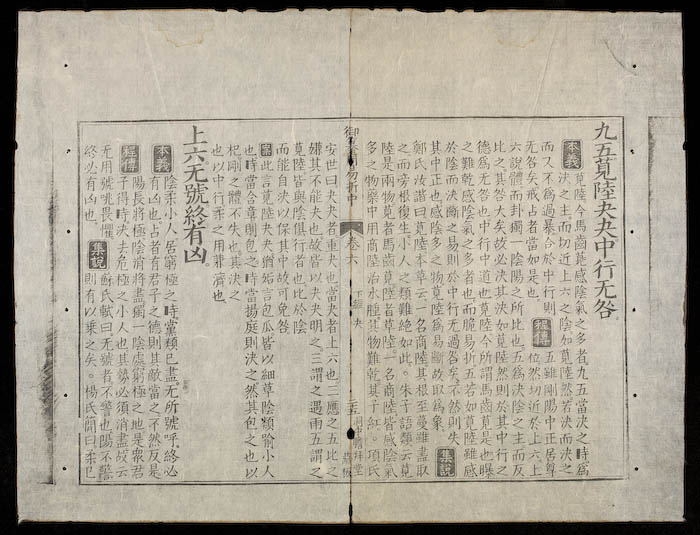 九五莧陸夬夬中行无咎
本義 莧陸今馬齒莧感陰氣之多者九五當決之時爲
決之主而切近上六之陰如莧陸然若決而決之
而又不爲過暴合於中行則
无咎矣戒占者當如是也
程傳 五雖剛陽中正居尊
位然切近於上六上
六說體而卦獨一陰陽之所比也五爲決陰之主而反
比之其咎大矣故必決其決如莧陸然則於其中行之
德爲无咎也中行中道也莧陸今所謂馬齒莧是也曝
之難乾感陰氣之多者也而脆易折五若如莧陸雖感
於陰而決斷之易則於中行无過咎矣不然則失
其中正也感陰多之物莧陸爲易斷故取爲象 集說
鄭氏汝諧曰莧陸本草云一名商陸其根至蔓雖盡取
之而旁根復生小人之類難絕如此。朱子語類云莧
陸是兩物莧者馬齒莧陸者草陸一名商陸皆感陰氣
多之物藥中用商陸治水腫其物難乾其子紅。項氏
御纂周易折中 卷六 下經 夬
安世曰夬夬者重夬也當夬者上六也三應之五比之
嫌其不能夬也故皆以夬夬明之三謂之遇雨五謂之
莧陸皆與陰俱行者也比於陰
而能自決以保其中故可免咎
案 此言莧陸夬夬猶姤言包瓜皆以細草陰類喻小人
也時當含章則包之時當揚庭則決之然其包之也以
杞剛之體不失也其決之
也以中行柔之用兼濟也
上六无號終有凶。
本義 陰柔小人居窮極之時黨類已盡无所號呼終必
有凶也占者有君子之德則其敵當之不然反是
程傳 陽長將極陰消將盡獨一陰處窮極之地是衆君
子得時決去危極之小人也其勢必須消盡故云
无用號咷畏懼
終必有凶也。
集說 蘇氏軾曰无號者不警也陽不警
則有以乘之矣。楊氏簡曰柔已